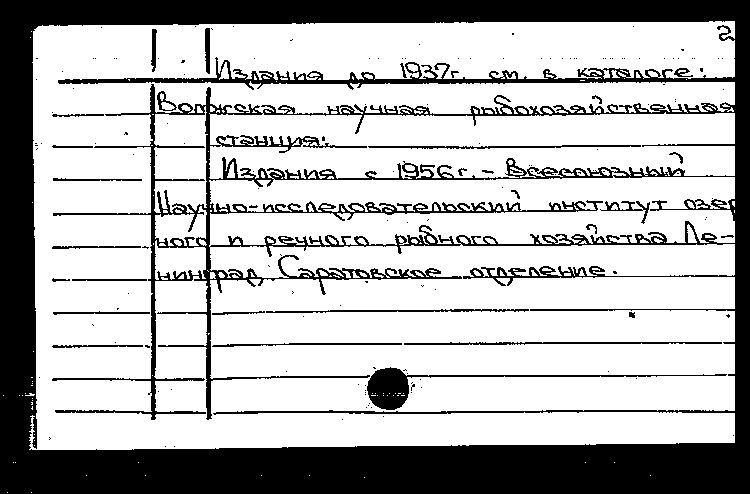 2
Издания до 1937г. см. в каталоге:
Волжская научная рыбохозяйственная
станция.
Издания с 1956г. - Всесоюзный
Научно-исследовательский институт озер
ного и речного рыбного хозяйства. Ле-
нинград. Саратовское отделение.